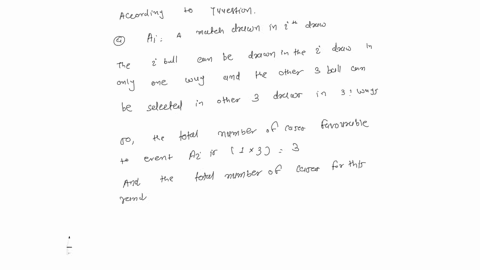 According to Question.
(a) Ai: A match drawn in ith draw
The i ball can be drawn in the i draw in
only one way and the other 3 ball can
be selected in other 3 draws in 3! ways
so, the total number of cases favourable
to event Ai is (1 x 3) = 3
And the total number of cases for this
rend